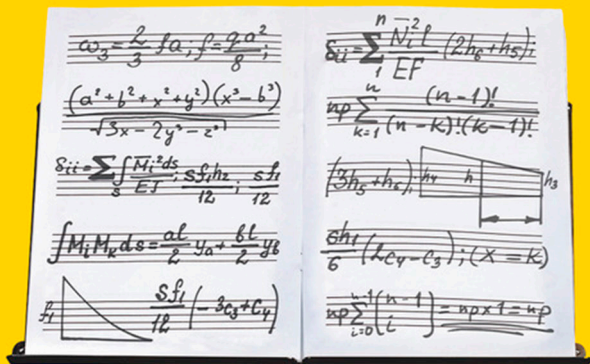 ω₃=2/3 fa; f=qa²/8;
(a²+b²+x²+y²)(x³-b³)/√3x-2y³-z³
δii=∑∫s M̅i²ds/EJ; sf₁h₂/12; sf₁/12
∫MiMkds=al/2 ya+bl/2 yb
f₁ Sf₁/12(-3c₃+c₄)
δii=∑ⁿ₁ N̅i²l/EF (2h₆+h₅);
np∑ⁿk=1 (n-1)!/(n-k)!(k-1)!
(3h₅+h₆); h₄ h h₃
sh₁/6(2c₄-c₃); (x=k)
np∑ⁿ⁻¹i=0(n-1 i)=np×1=np